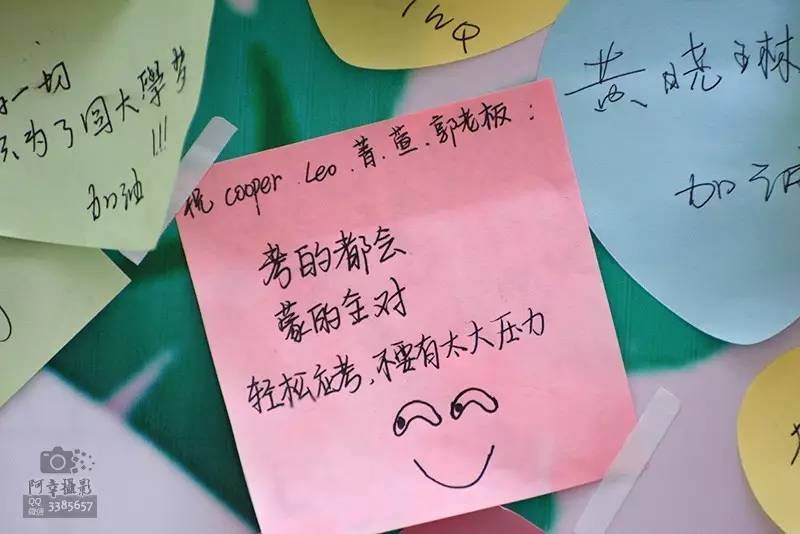 一切
为了圆大學梦
!!!
加油
祝 cooper. Leo. 菁. 萱. 郭老板:
考的都会
蒙的全对
轻松应考, 不要有太大压力
黄晓琳
加油
阿幸攝影
QQ
微信
3385657